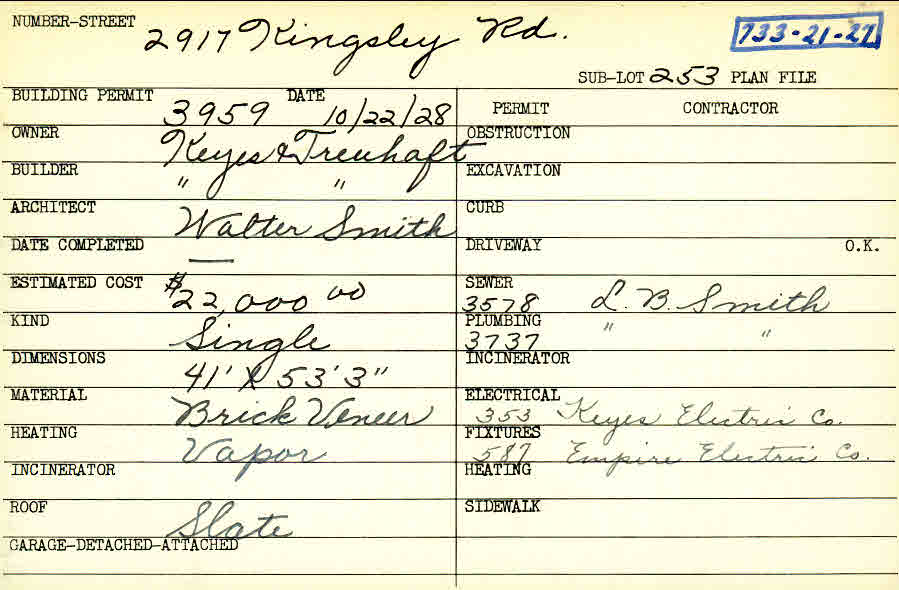 NUMBER-STREET 2917 Kingsley Rd. 733-21-27
SUB-LOT 253 PLAN FILE
BUILDING PERMIT 3959 DATE 10/22/28 PERMIT CONTRACTOR
OWNER Keyes & Treuhaft OBSTRUCTION
BUILDER " " EXCAVATION
ARCHITECT Walter Smith CURB
DATE COMPLETED — DRIVEWAY O.K.
ESTIMATED COST $22,000 00 SEWER 3578 L. B. Smith
KIND Single PLUMBING 3737 " "
DIMENSIONS 41' X 53' 3" INCINERATOR
MATERIAL Brick Veneer ELECTRICAL 353 Keyes Electric Co.
HEATING Vapor FIXTURES 587 Empire Electric Co.
INCINERATOR HEATING
ROOF Slate SIDEWALK
GARAGE-DETACHED-ATTACHED